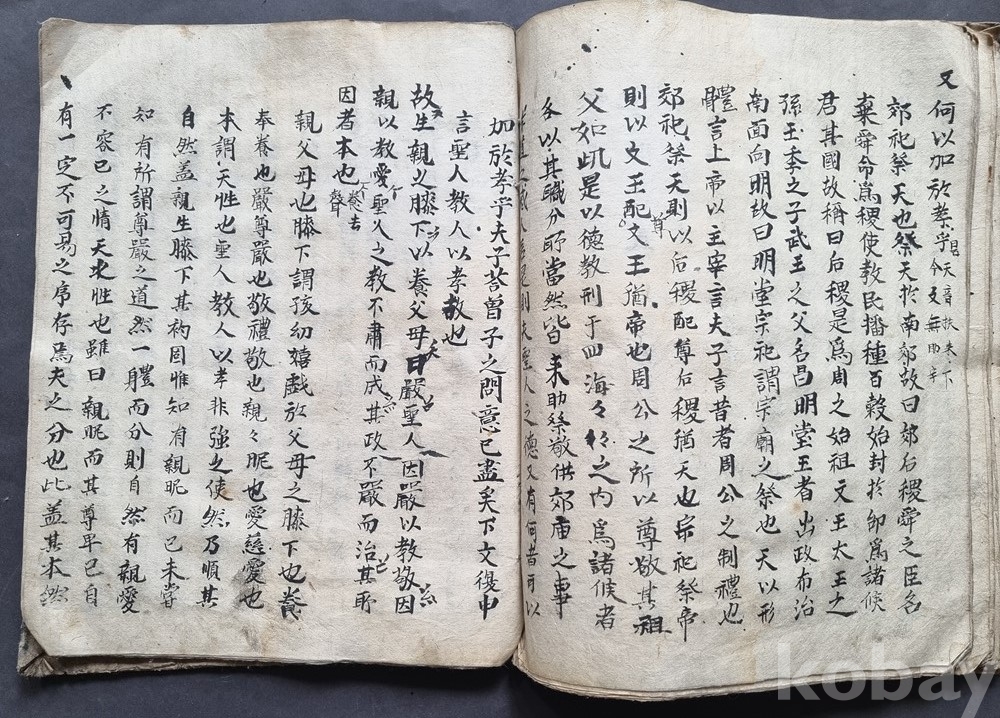 又何以加於孝乎
郊祀祭天也祭天於南郊故曰郊后稷舜之臣名
棄舜命爲稷使敎民播種百穀始封於邰爲諸候
君其國故稱曰后稷是爲周之始祖文王太王之
孫王季之子武王之父名昌明堂王者出政布治
南面向明故曰明堂宗祀謂宗廟之祭也天以形
軆言上帝以主宰言夫子言昔者周公之制禮也
郊祀祭天則以后稷配尊后稷猶天也宗祀祭帝
則以文王配尊文王猶帝也周公之所以尊敬其祖
父如此是以德敎刑于四海々之內爲諸候者
各以其職分所當然皆來助祭敬供郊庙之事
聖人之德又有何者可以
加於孝乎夫子荅曽子之問意已盡矣下文復申
言聖人敎人以孝敎也
故生親之膝下以養父母日嚴聖人因嚴以敎敬因
親以敎愛聖人之敎不肅而成其政不嚴而治其所
因者本也 養去聲
親父母也膝下謂孩幼嬉戲於父母之膝下也養
奉養也嚴尊嚴也敬禮敬也親々昵也愛慈愛也
本謂天性也聖人敎人以孝非強之使然乃順其
自然盖親生膝下其初固惟知有親昵而已未嘗
知有所謂尊嚴之道然一軆而分則自然有親愛
不容已之情天性也雖曰親昵而其尊卑已自
有一定不可易之序存焉夫之分也此盖其本然
kobay